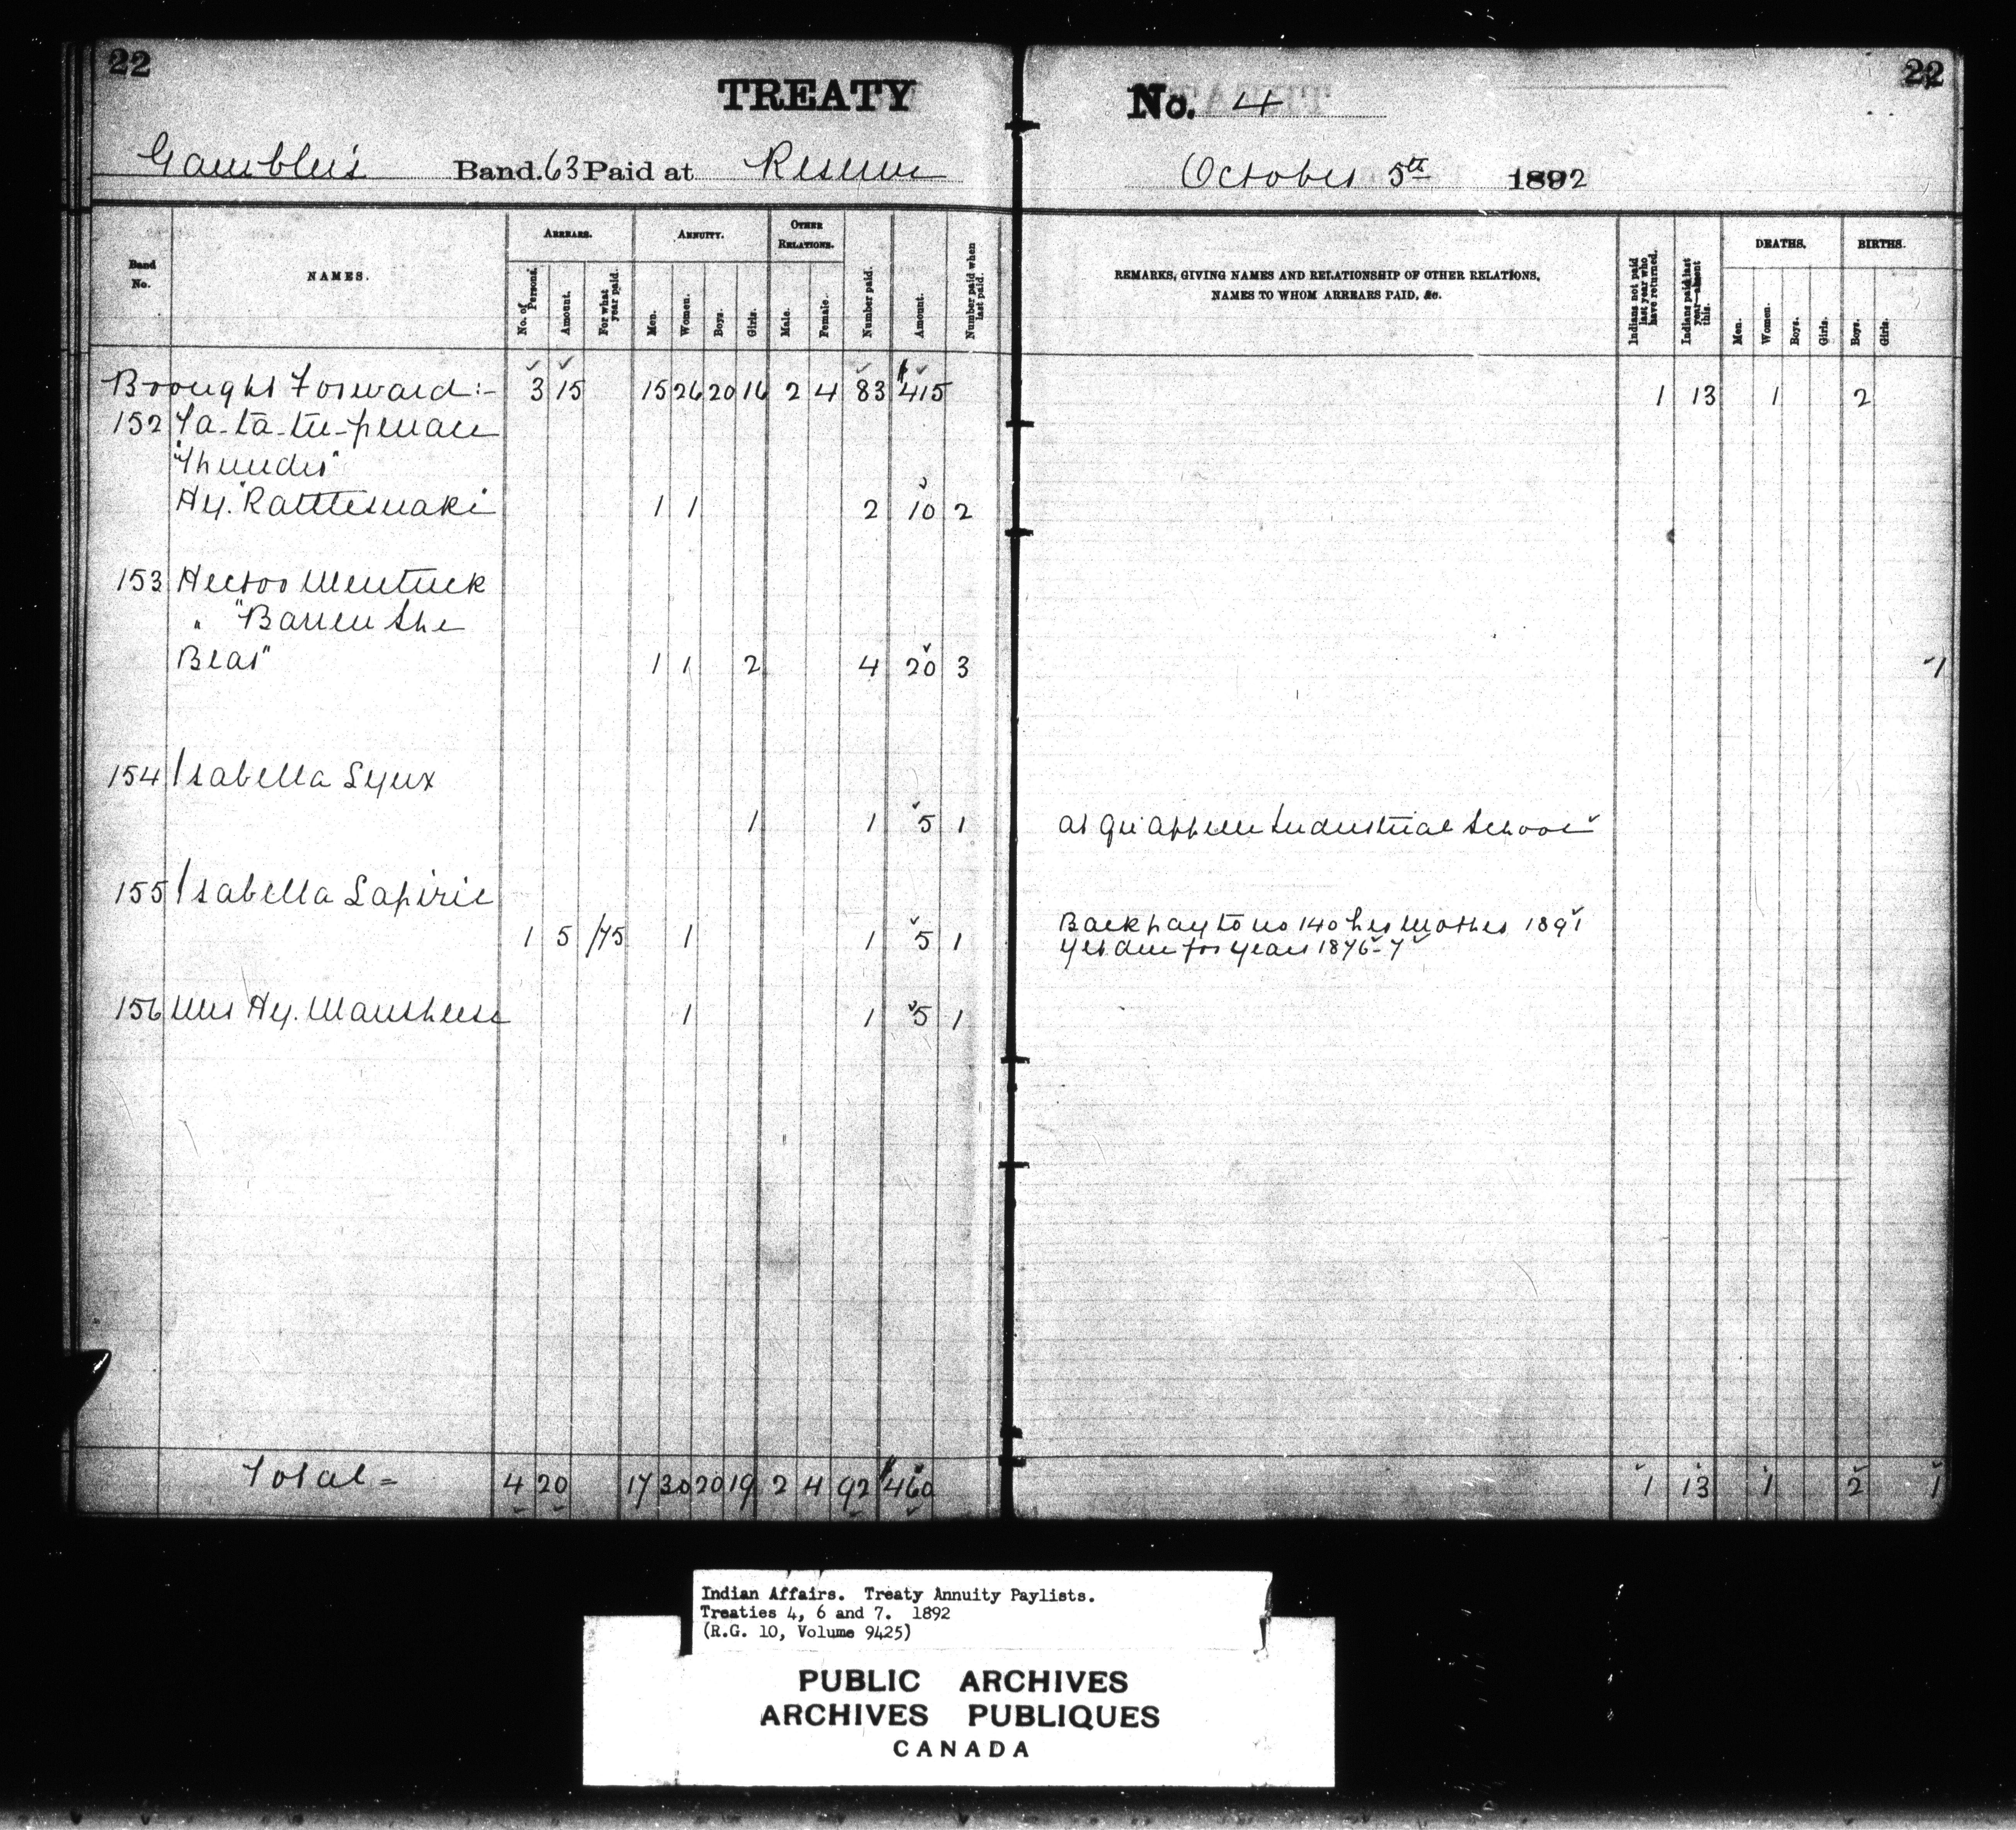 22
TREATY No. 4
22
Gambler's Band. 63 Paid at Reserve October 5th 1892
Band No.
NAMES.
ARREARS.
No. of Persons.
Amount.
For what year paid.
ANNUITY.
Men.
Women.
Boys.
Girls.
OTHER RELATIONS.
Male.
Female.
Number paid.
Amount.
Number paid when last paid.
REMARKS, GIVING NAMES AND RELATIONSHIP OF OTHER RELATIONS,
NAMES TO WHOM ARREARS PAID, &c.
Indians not paid last year who have returned.
Indians paid last year—absent this.
DEATHS.
Men.
Women.
Boys.
Girls.
BIRTHS.
Boys.
Girls.
Brought Forward:- 3 15 15 26 20 16 2 4 83 $415 1 13 1 2
152 Ta-ta-tu-
"Thunder"
Hy. "Rattlesnake" 1 1 2 10 2
153 Hector Mentuck
" "Barren She
Bear" 1 1 2 4 20 3 1
154 Isabella
1 1 5 1 at Qu'Appelle Industrial School
155 Isabella Lapirie
1 5 /75 1 1 5 1 Back pay to no 140 her Mother 1891
yet due for years 1876-7
156 Mrs Hy. 1 1 5 1
Total = 4 20 17 30 20 19 2 4 92 $460 1 13 1 2 1
Indian Affairs. Treaty Annuity Paylists.
Treaties 4, 6 and 7. 1892
(R.G. 10, Volume 9425)
PUBLIC ARCHIVES
ARCHIVES PUBLIQUES
CANADA